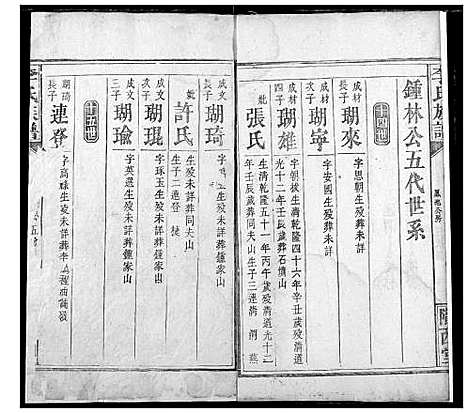 李氏族譜
隴西堂
鍾林公五代世系
十四世
成材長子
瑚來
字思朝生歿葬未詳
成材次子
瑚寧
字安國生歿葬未詳
成材四子
瑚雄
字朝拔生清乾隆四十六年辛丑歲歿清道
光十二年壬辰歲葬石塡山
妣
張氏
生清乾隆五十一年丙午歲歿清道光十二
年壬辰歲葬同夫山生子三連清
成文長子
瑚琦
妣
許氏
生歿未詳葬同夫山
生子二連登 連
成文次子
瑚琨
字琢玉生歿未詳葬鍾家山
成文三子
瑚瑜
字英選生歿未詳葬鍾家山
十五世
瑚琦長子
連登
李氏族譜